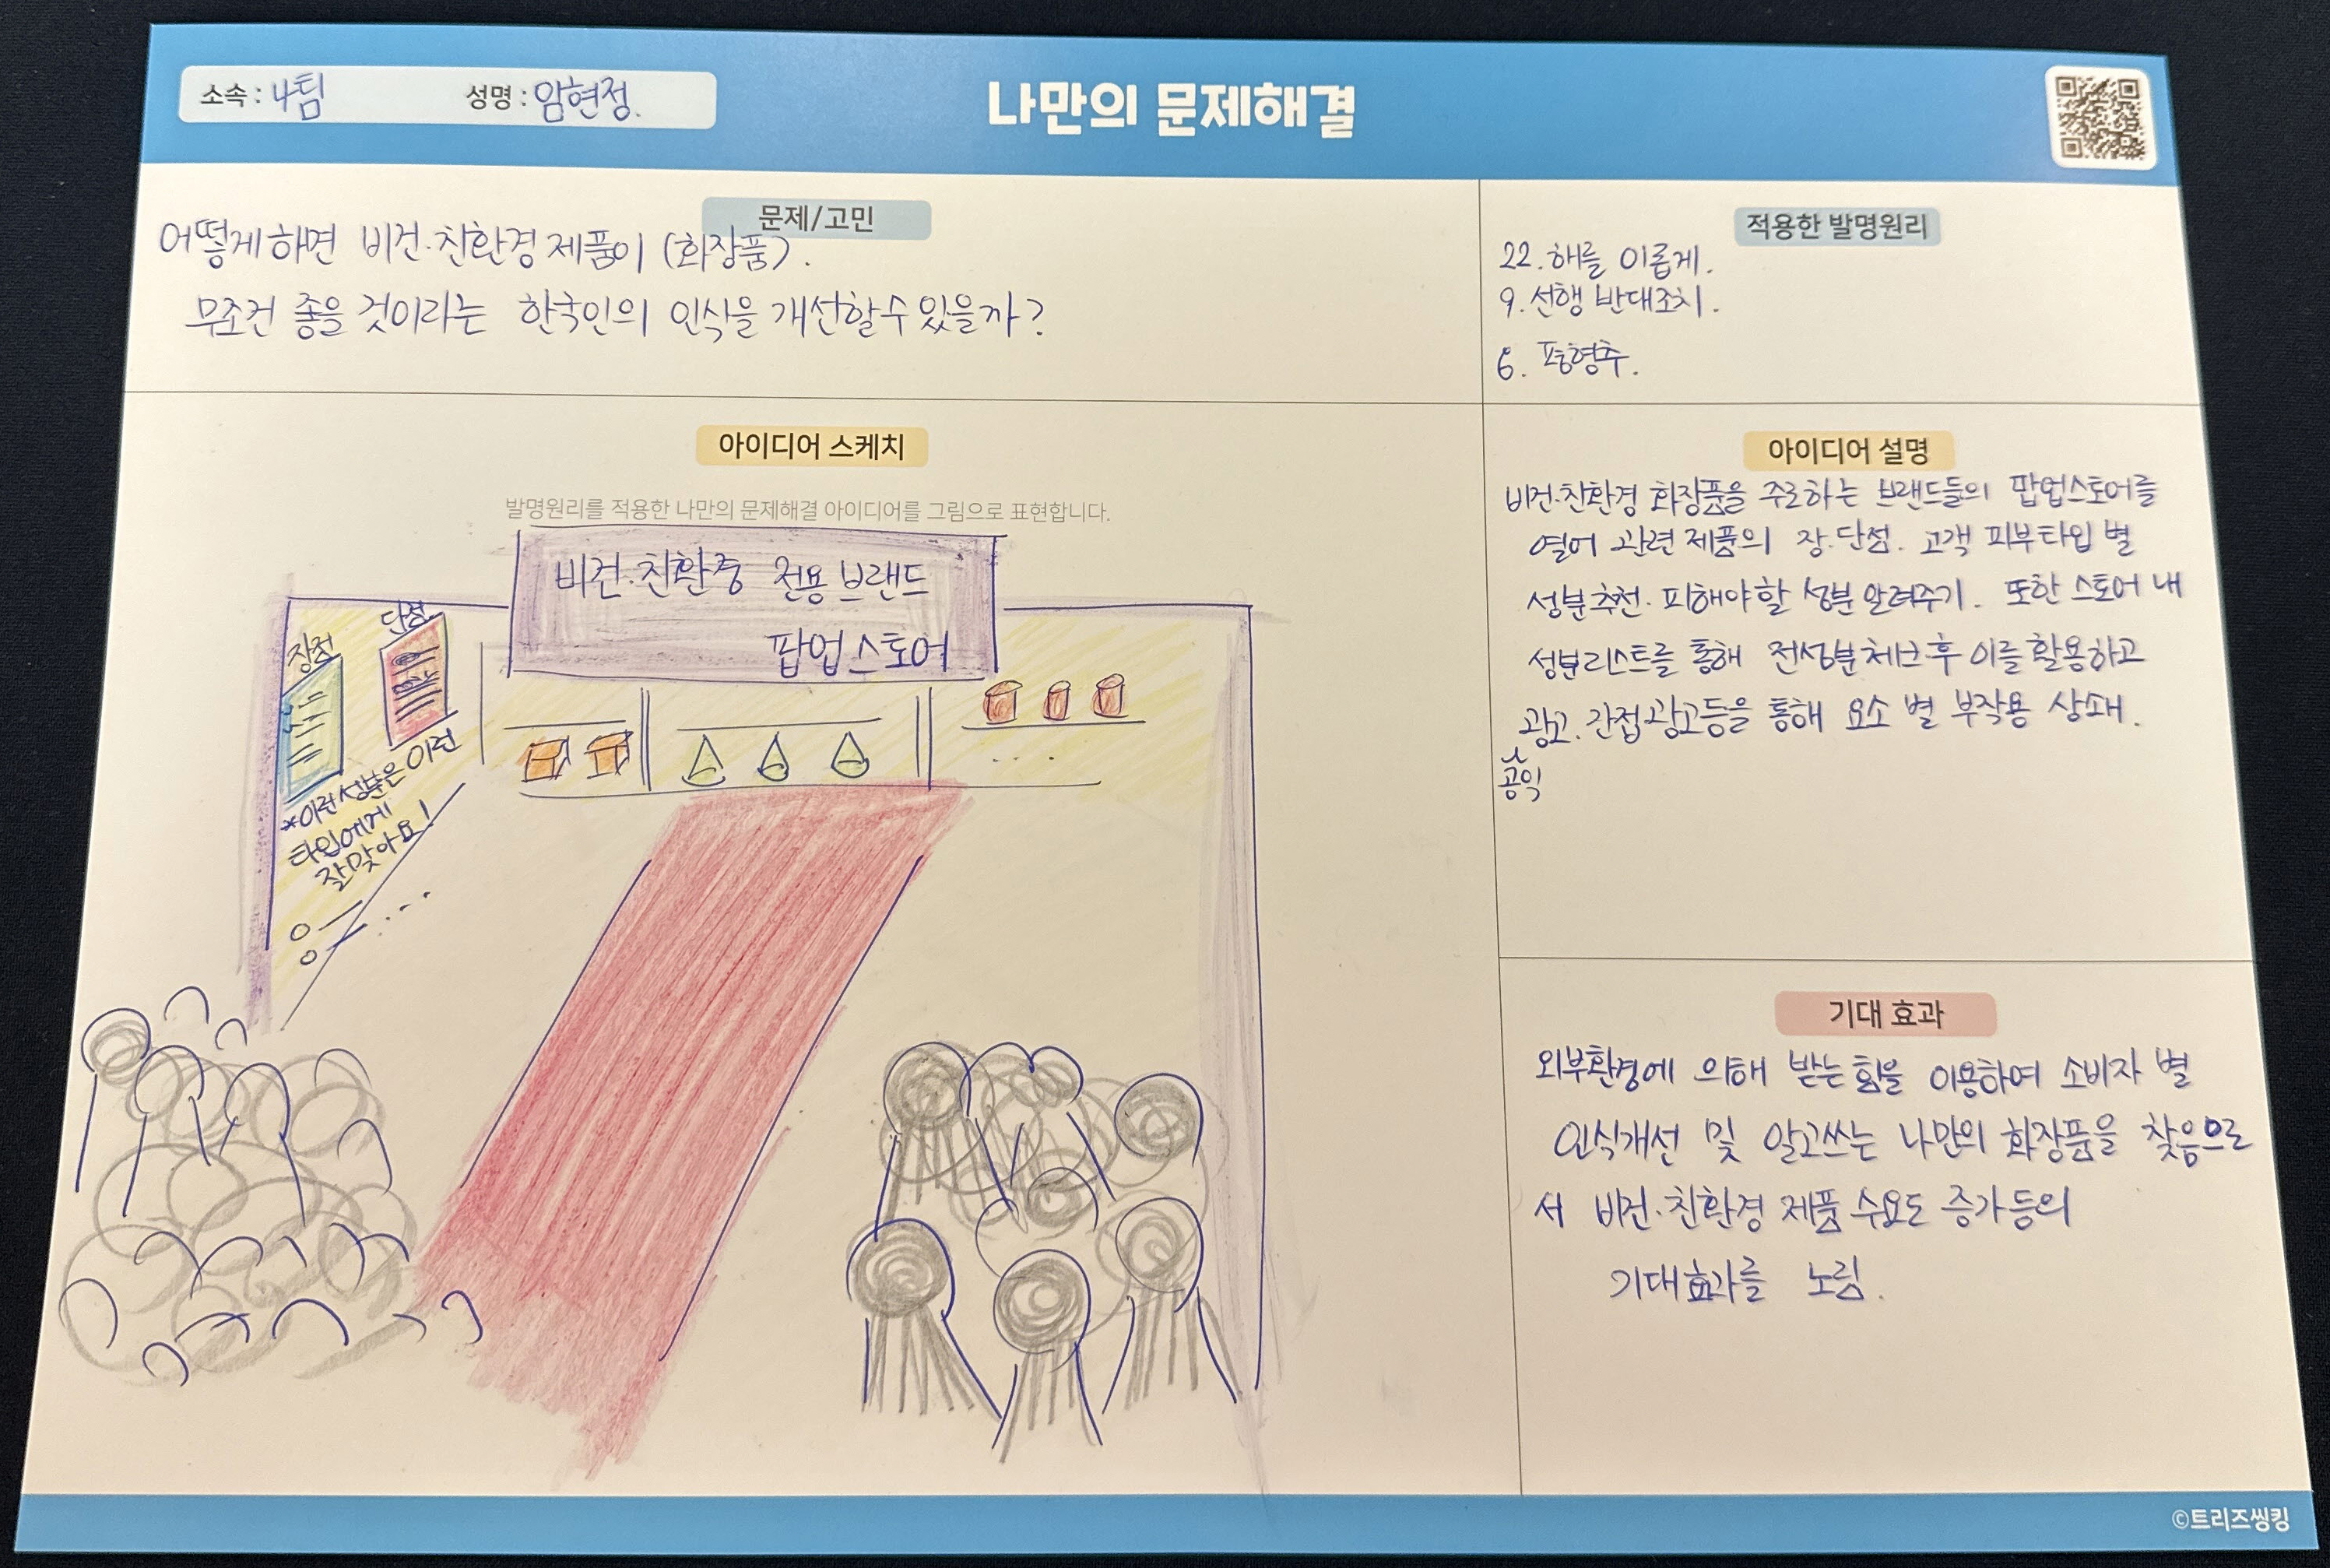 소속 : 4팀 성명 : 임현정.
나만의 문제해결
문제/고민
어떻게하면 비건·친환경 제품이 (화장품).
무조건 좋을 것이라는 한국인의 인식을 개선할수 있을까?
적용한 발명원리
22. 해를 이롭게.
9. 선행 반대조치.
6. 평형추.
아이디어 스케치
발명원리를 적용한 나만의 문제해결 아이디어를 그림으로 표현합니다.
비건·친환경 전용 브랜드
팝업스토어
장점
단점
*이런 성분은 이런
타입에게
잘맞아요!
아이디어 설명
비건·친환경 화장품을 주로하는 브랜드들의 팝업스토어를
열어 관련 제품의 장·단점. 고객 피부타입 별
성분추천· 피해야할 성분 알려주기. 또한 스토어 내
성분리스트를 통해 전성분체크후 이를 활용하고
광고. 간접광고등을 통해 요소 별 부작용 상쇄.
공익
기대 효과
외부환경에 의해 받는 힘을 이용하여 소비자 별
인식개선 및 알고쓰는 나만의 화장품을 찾음으로
서 비건·친환경 제품 수요도 증가등의
기대효과를 노림.
©트리즈씽킹